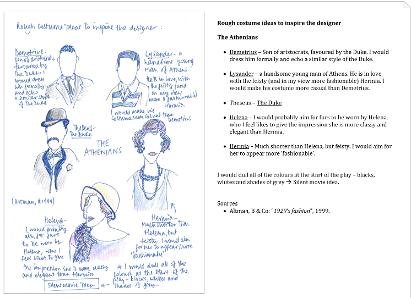 Rough costume ideas to inspire the designer...
Demetrius -
Son of aristocrats,
favoured by
the Duke. I
would dress
him formally
and echo
a similar style
of the Duke
Lysander - a
handsome young
man of Athens.
He is in love with
the feisty (and
in my view
more fashionable)
Hermia.
I would make his
costume more casual than
Demetrius
Theseus -
The Duke
THE
ATHENIANS
(Altman, &1999)
Helena -
I would probably
aim for furs
to be worn by
Helena, who I
feel likes to give
the impression she is more classy
and elegant than Hermia
Hermia -
Much shorter than
Helena, but
feisty. I would aim
for her to appear more
'fashionable'.
I would dull all of the
colours at the start of the
play - blacks, whites and
shades of grey
Silent movie idea
Rough costume ideas to inspire the designer
The Athenians
Demetrius – Son of aristocrats, favoured by the Duke. I would
dress him formally and echo a similar style of the Duke.
Lysander – a handsome young man of Athens. He is in love
with the feisty (and in my view more fashionable) Hermia. I
would make his costume more casual than Demetrius.
Theseus – The Duke
Helena – I would probably aim for furs to be worn by Helena,
who I feel likes to give the impression she is more classy and
elegant than Hermia.
Hermia – Much shorter than Helena, but feisty. I would aim
for her to appear more 'fashionable'.
I would dull all of the colours at the start of the play – blacks,
whites and shades of grey → Silent movie idea.
Sources
Altman, S & Co: "1920's fashion", 1999.